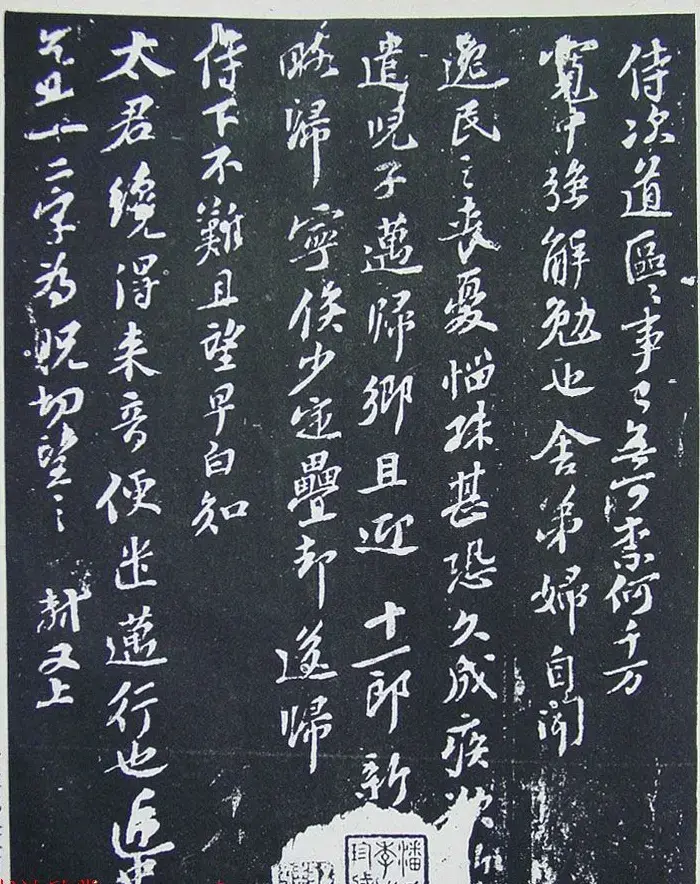 侍次道區〻事乃無可柰何千万
寬中強解勉也舍弟婦自聞
逸民之喪憂惱殊甚恐久成疾欲
遣兒子邁歸鄉且迎十一郎新
歸寧俟少定疊却送歸
侍下不難且望早白知
太君纔得来音便遣邁行也近
二字為祝切望〻 軾又上